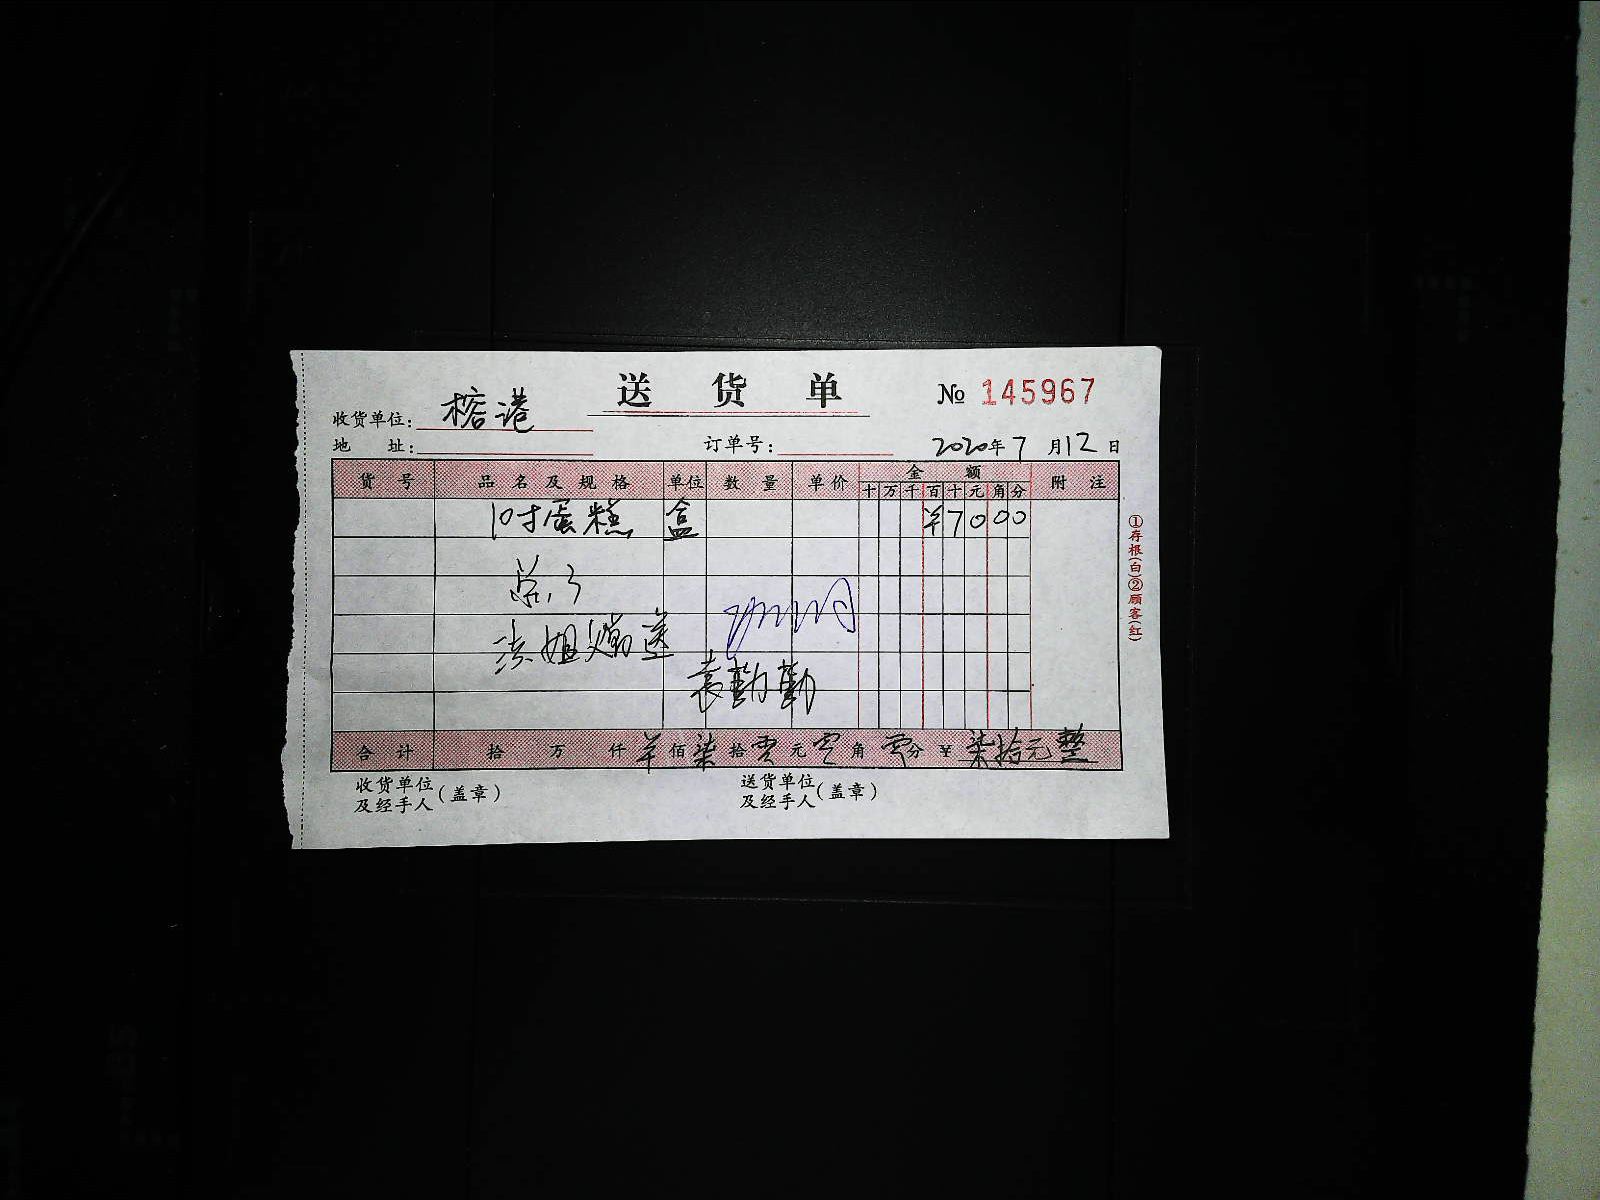 送 货 单 № 145967
收货单位: 榕港
地 址: 订单号: 2020年7月12日
货 号 品 名 及 规 格 单位 数 量 单价 金 额 附 注
十 万 千 百 十 元 角 分
10寸蛋糕 盒 ¥7000
袁勤勤
合 计 拾 万 仟 ¥佰 柒拾 零元 零角 零分 ¥ 柒拾元整
收货单位及经手人(盖章) 送货单位及经手人(盖章)
①存根(白)②顾客(红)